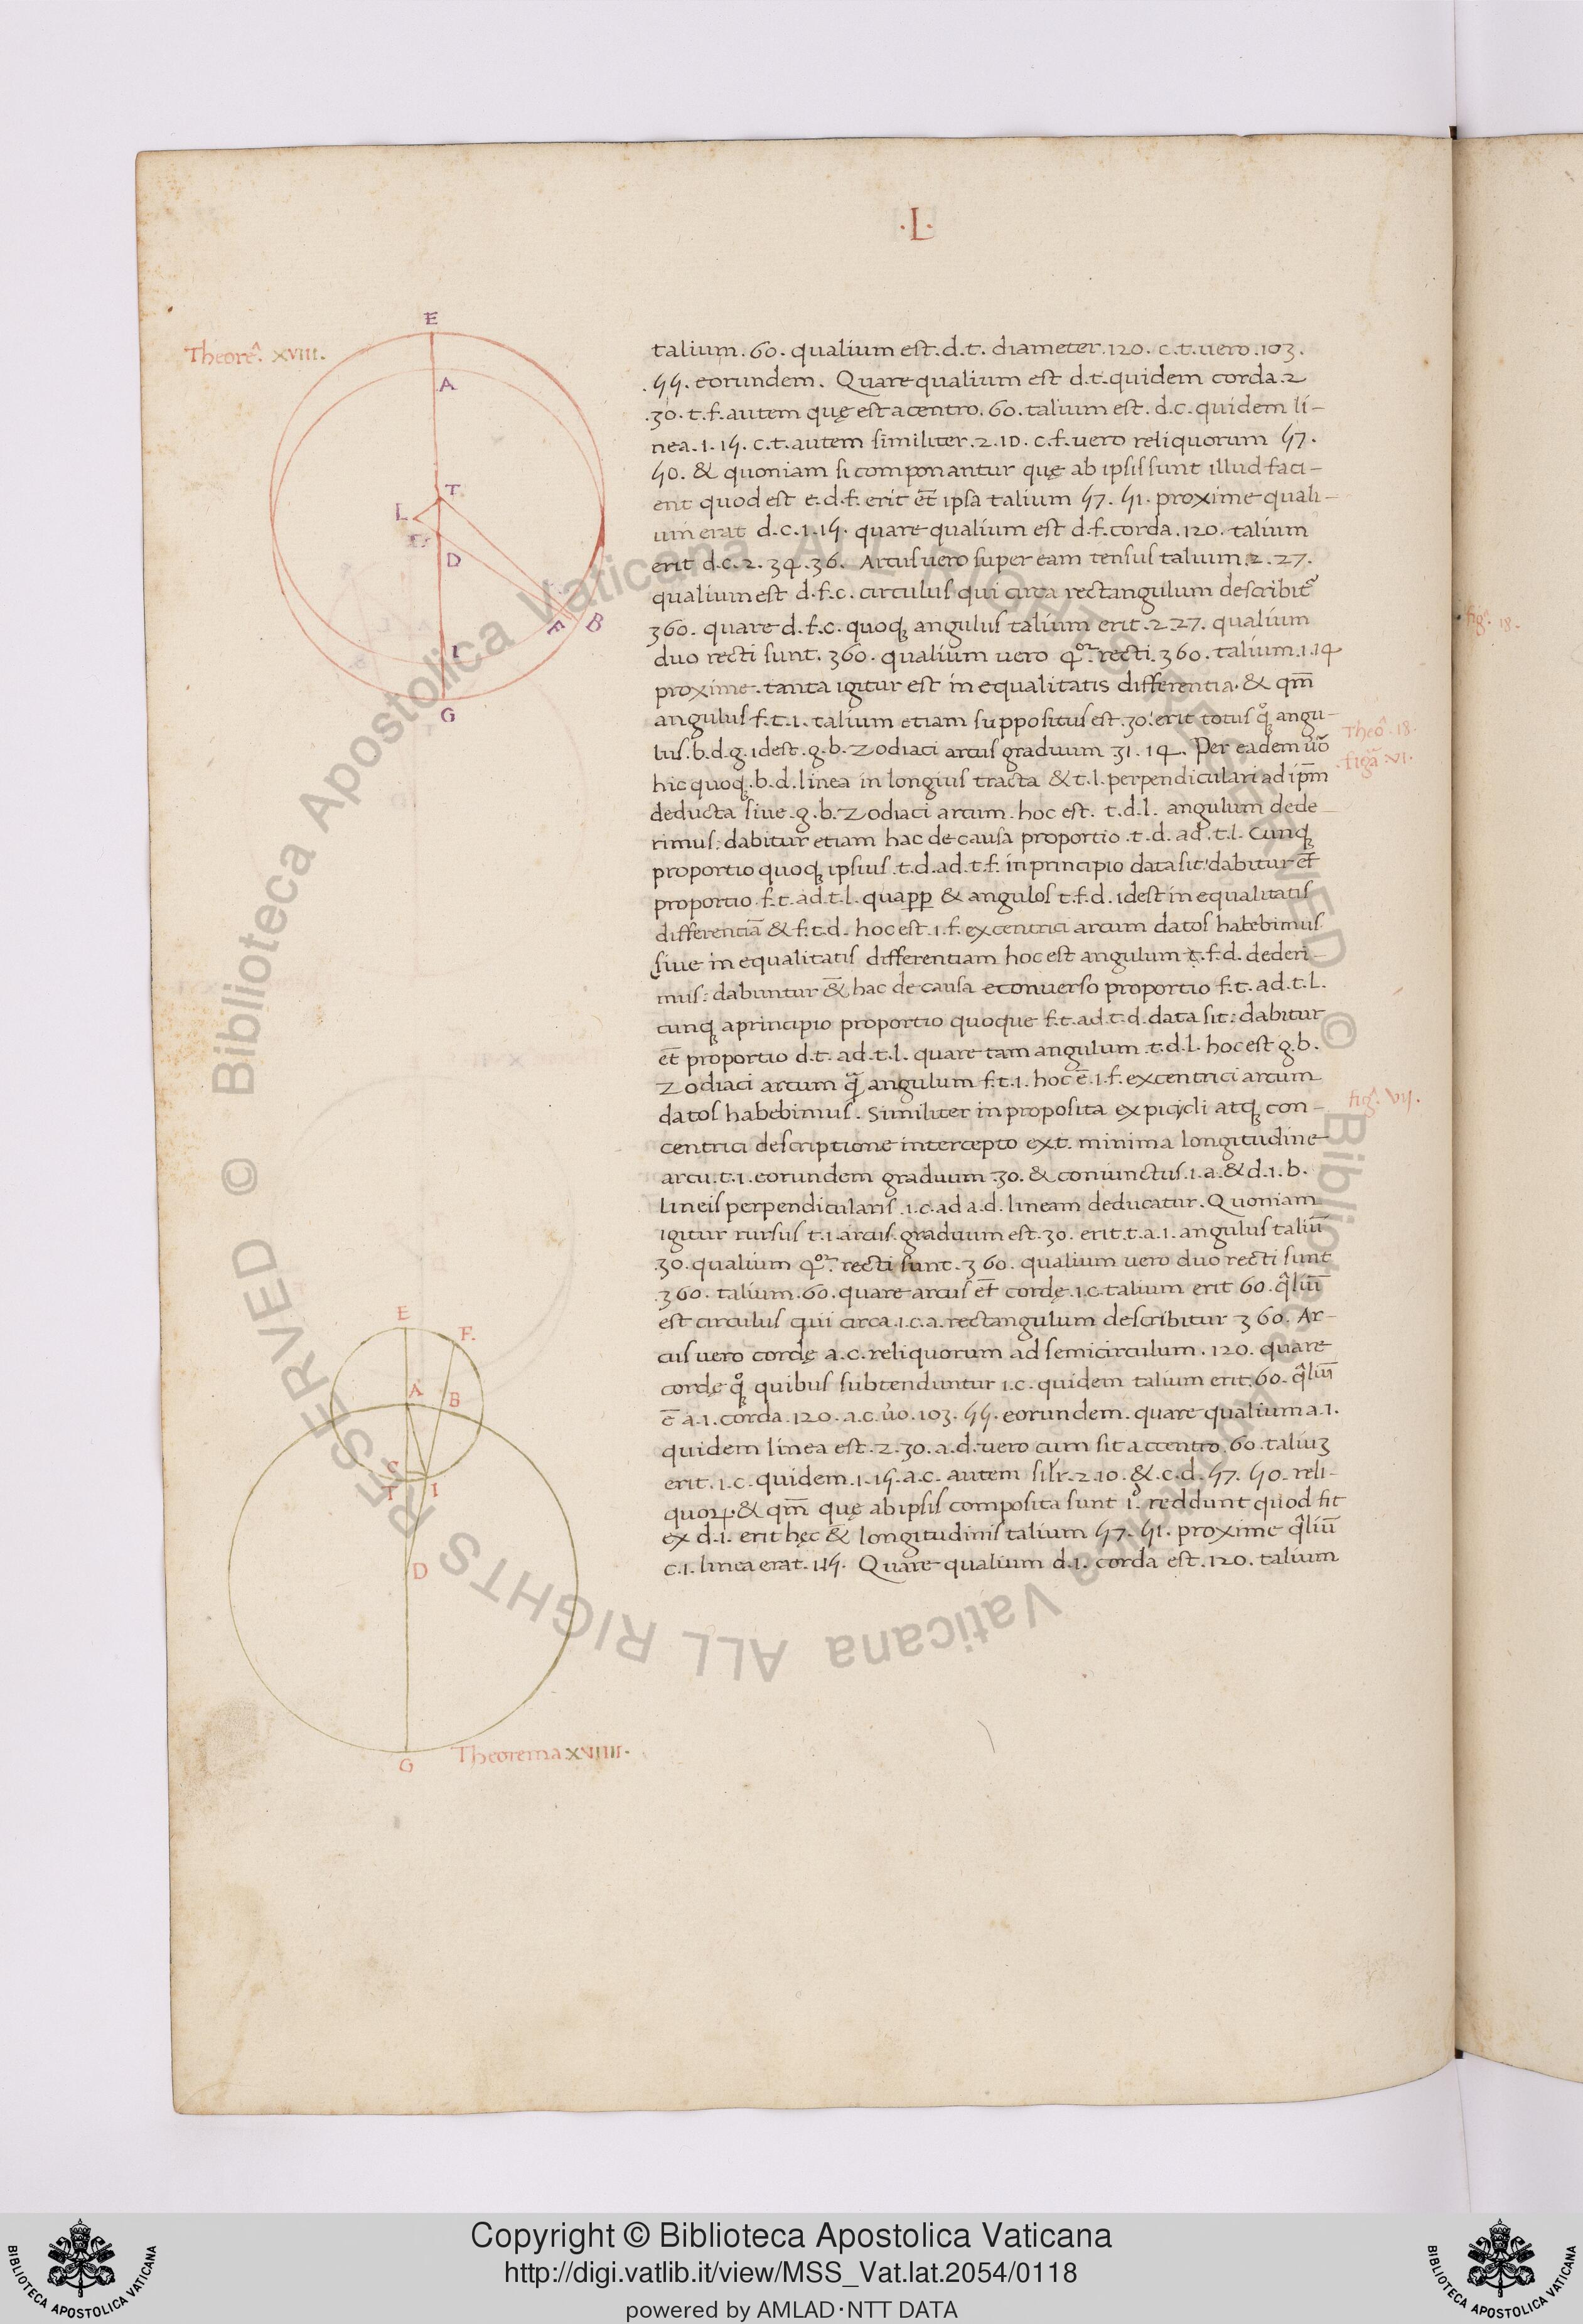 ·L·
Theorē. XVIII.
E
A
T
L
D
F
B
I
G
talium. 60. qualium est. d.t. diameter. 120. c.t. uero. 103.
.55. eorundem. Quare qualium est d.t. quidem corda. 2
.30. t.f. autem quę est a centro. 60. talium est. d.c. quidem li-
nea. 1. 15. c.t. autem similiter. 2. 10. c.f. uero reliquorum 57.
50. & quoniam si componantur quę ab ipsis sunt illud faci-
ent quod est e.d.f. erit et̄ ipsa talium 57. 51. proxime quali-
um erat d.c. 1. 15. quare qualium est d.f. corda. 120. talium
erit d.c. 2. 34. 36. Arcus uero super eam tensus talium. 2. 27.
qualium est d.f.c. circulus qui circa rectangulum describit᷑
360. quare d.f.c. quoqꝫ angulus talium erit. 2 27. qualium
duo recti sunt. 360. qualium uero 4ᵒʳ. recti. 360. talium. 1. 14
proxime. tanta igitur est inequalitatis differentia. & qm̄
angulus f.t.i. talium etiam suppositus est. 30. erit totus qꝫͦ angu-
lus. b.d.g. idest. g.b. Zodiaci arcus graduum 31. 14. Per eadem uō
hic quoqꝫ. b.d. linea in longius tracta & t.l. perpendiculari ad ip̄m
deducta siue. g.b. Zodiaci arcum. hoc est. t.d.l. angulum dede-
rimus: dabitur etiam hac de causa proportio. t.d. ad. t.l. Cunqꝫ
proportio quoqꝫ ipsius. t.d. ad. t.f. in principio data sit: dabitur et̄
proportio. f.t. ad. t.l. quapp̱ & angulos t.f.d. idest inequalitatis
differentiā & f.t.d. hoc est. i.f. excentrici arcum datos habebimus
siue inequalitatis differentiam hoc est angulum t.f.d. dederi-
mus: dabuntur &̄ hac de causa econuerso proportio f.t. ad. t.l.
cunqꝫ a principio proportio quoque f.t. ad. t.d. data sit: dabitur
et̄ proportio d.t. ad. t.l. quare tam angulum. t.d.l. hoc est g.b.
Zodiaci arcum q̄ angulum f.t.i. hoc ē. i.f. excentrici arcum
datos habebimus. Similiter in proposita expicicli atqꝫ con-
centrici descriptione intercepto ex.t. minima longitudine
arcu. t.i. eorundem graduum 30. & coniunctus. i.a. & d.i.b.
Lineis perpendicularis. i.c. ad a.d. lineam deducatur. Quoniam
igitur rursus t.i. arcus. graduum est. 30. erit. t.a.i. angulus taliū
.30. qualium 4ᵒʳ. recti sunt. 360. qualium uero duo recti sunt
.360. talium. 60. quare arcus et̄ cordę. i.c. talium erit 60. qͣliū
est circulus qui circa. i.c.a. rectangulum describitur 360. Ar-
cus uero cordę a.c. reliquorum ad semicirculum. 120. quare
cordę qꝫͦ quibus subtenduntur i.c. quidem talium erit. 60. qͣliū
ē a.i. corda. 120. a.c. u̇o. 103. 55. eorundem. quare qualium a.i.
quidem linea est. 2. 30. a.d. uero cum sit a ccentro. 60. taliuꝫ
erit. i.c. quidem. 1. 15. a.c. autem silr. 2. 10. & .c.d. 57. 50. reli-
quoꝝ. & qm̄ quę ab ipsis composita sunt iͦ. reddunt quod fit
ex d.i. erit hęc & longitudinis talium 57. 51. proxime qͣliū
c.i. linea erat. 1 15. Quare qualium d.i. corda est. 120. talium
Theō. 18.
figā VI.
fig. VII.
fig. 18.
E
F.
A
B
C
T
I
D
G
Theorema XVIIII.
Copyright © Biblioteca Apostolica Vaticana
http://digi.vatlib.it/view/MSS_Vat.lat.2054/0118
powered by AMLAD·NTT DATA
BIBLIOTECA APOSTOLICA VATICANA
BIBLIOTECA APOSTOLICA VATICANA
© Biblioteca Apostolica Vaticana ALL RIGHTS RESERVED © Biblioteca Apostolica Vaticana ALL RIGHTS RESERVED